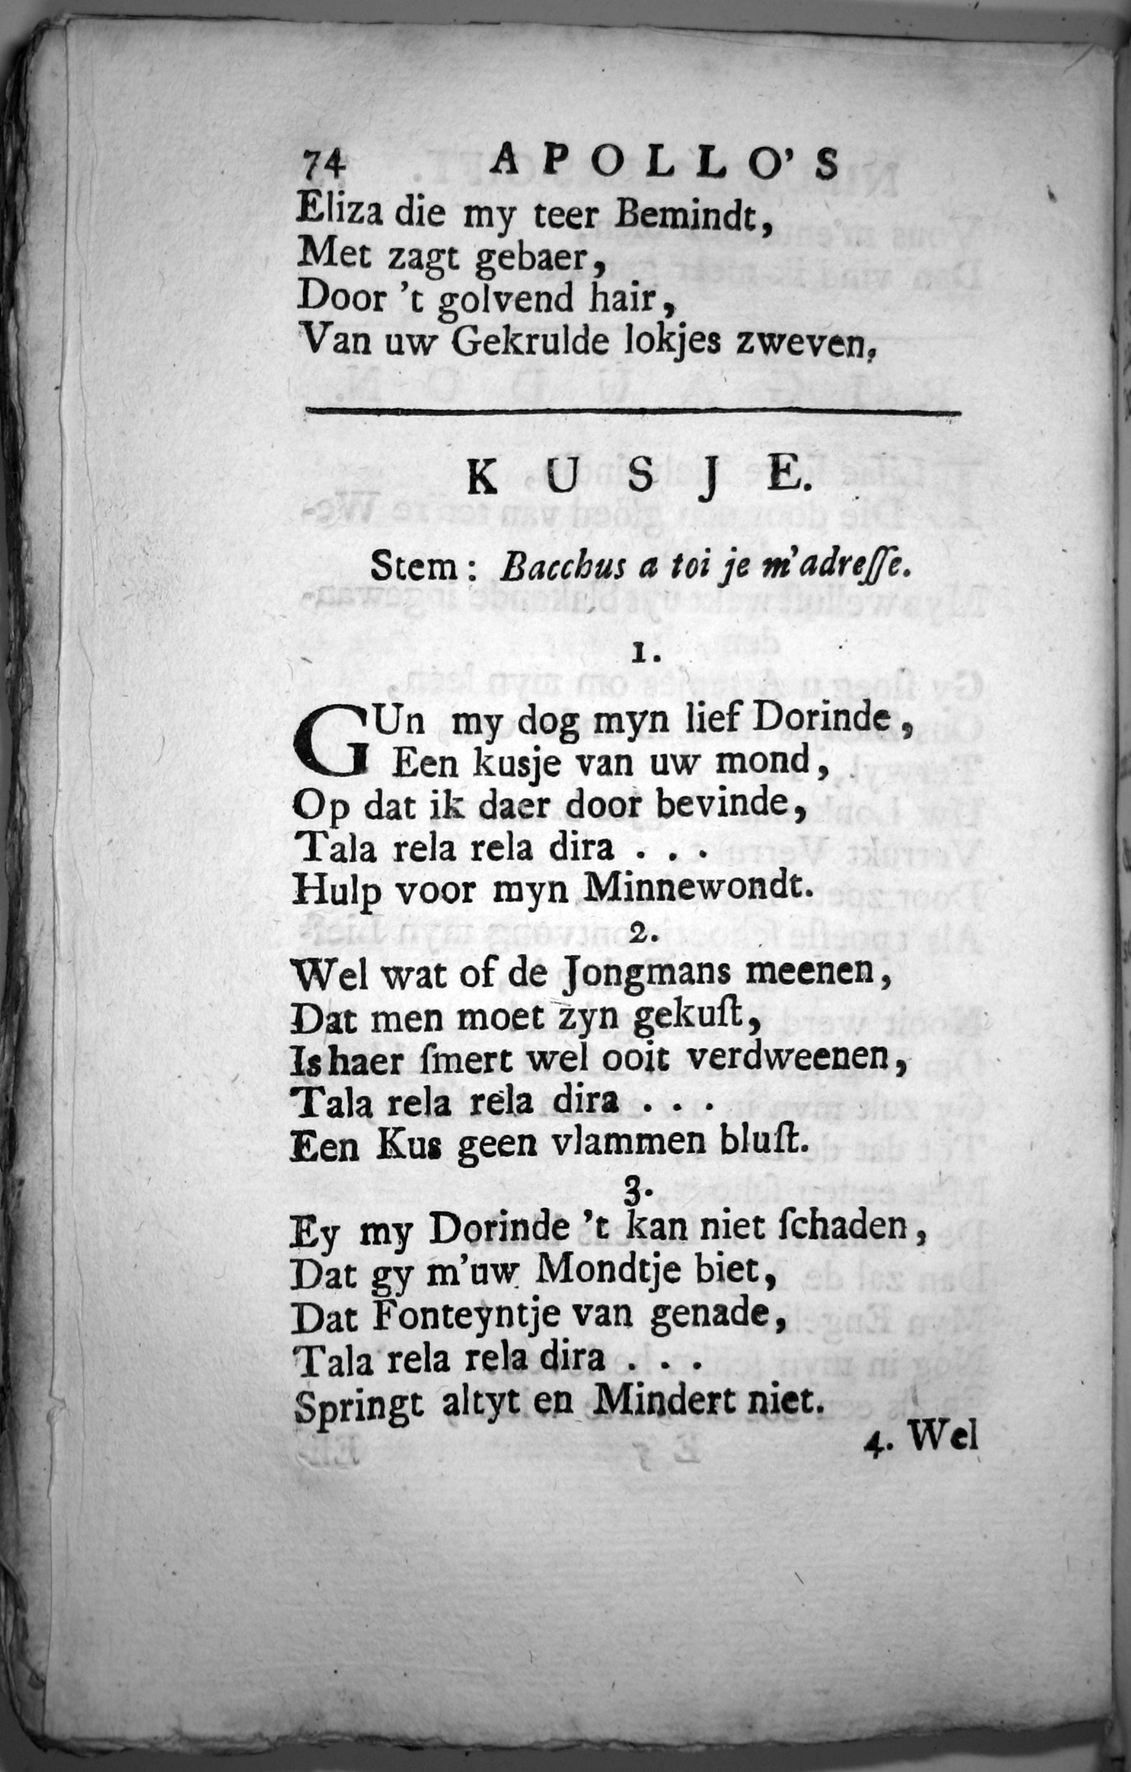 74 APOLLO'S
Eliza die my teer Bemindt,
Met zagt gebaer,
Door 't golvend hair,
Van uw Gekrulde lokjes zweven.
KUSJE.
Stem: Bacchus a toi je m'adreſſe.
1.
GUn my dog myn lief Dorinde,
Een kusje van uw mond,
Op dat ik daer door bevinde,
Tala rela rela dira . . .
Hulp voor myn Minnewondt.
2.
Wel wat of de Jongmans meenen,
Dat men moet zyn gekuſt,
Is haer ſmert wel ooit verdweenen,
Tala rela rela dira . . .
Een Kus geen vlammen bluſt.
3.
Ey my Dorinde 't kan niet ſchaden,
Dat gy m'uw Mondtje biet,
Dat Fonteyntje van genade,
Tala rela rela dira . . .
Springt altyt en Mindert niet.
4. Wel